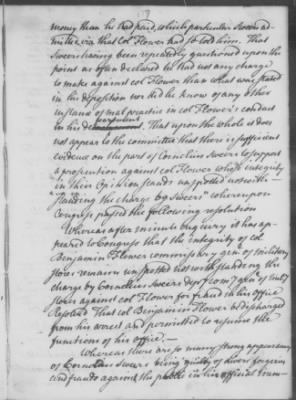 money than he had paid, which particular Sweers ad-
mitted, viz that Col Flower had so told him. That
Sweers having been repeatedly questioned upon the
point as often declared he had not any charge
to make against Col Flower than what was stated
in his deposition nor did he know of any other
instance of mal practice in Col Flower's conduct
in his department. That upon the whole it does
not appear to the committee that there is sufficient
evidence on the part of Cornelius Sweers to support
a prosecution against Col Flower whose integrity
in their Opinion stands unspotted notwith-
standing the charge by Sweers" whereupon
Congress passed the following resolution
Whereas after minute enquiry it has ap-
peared to Congress that the integrity of Col
Benjamin Flower commissary gen of military
stores remains unspotted notwithstanding the
charge by Cornelius Sweers dep y com y gen of mil y
stores against Col Flower for fraud in his office
Resolved That Col Benjamin Flower be discharged
from his arrest and permitted to resume the
functions of his office.—
Whereas there are so many strong appearances
of Cornelius Sweers being guilty of divers forgeries
and frauds against the public in his official tran-